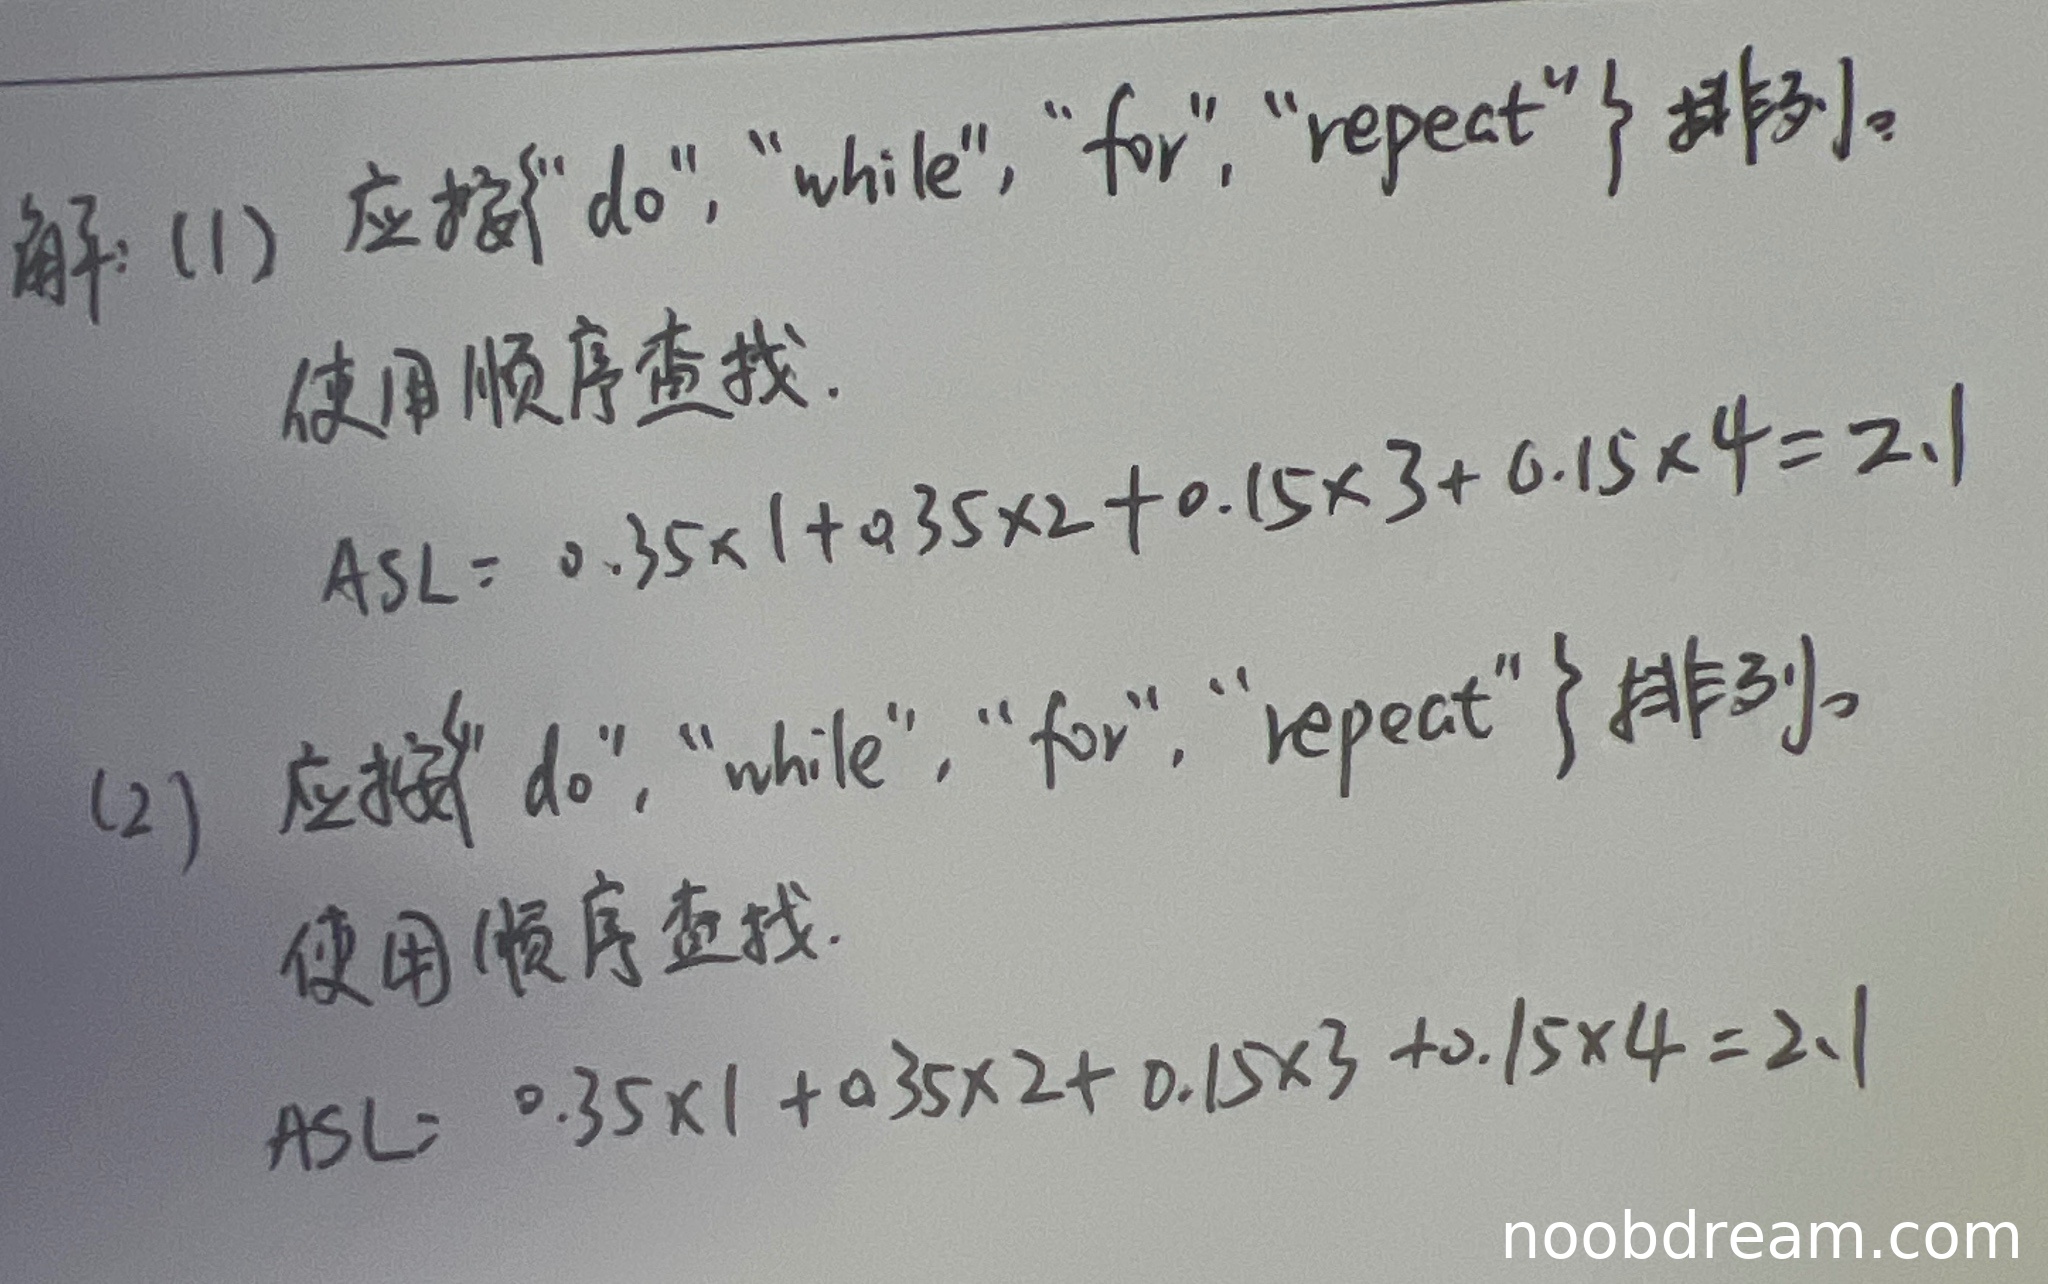 解：(1) 应按{“do”, “while”, “for”, “repeat”} 排列。
使用顺序查找.
ASL= 0.35×1+0.35×2+0.15×3+0.15×4=2.1
(2) 应按{“do”, “while”, “for”, “repeat”} 排列。
使用顺序查找.
ASL= 0.35×1+0.35×2+0.15×3+0.15×4=2.1
noobdream.com